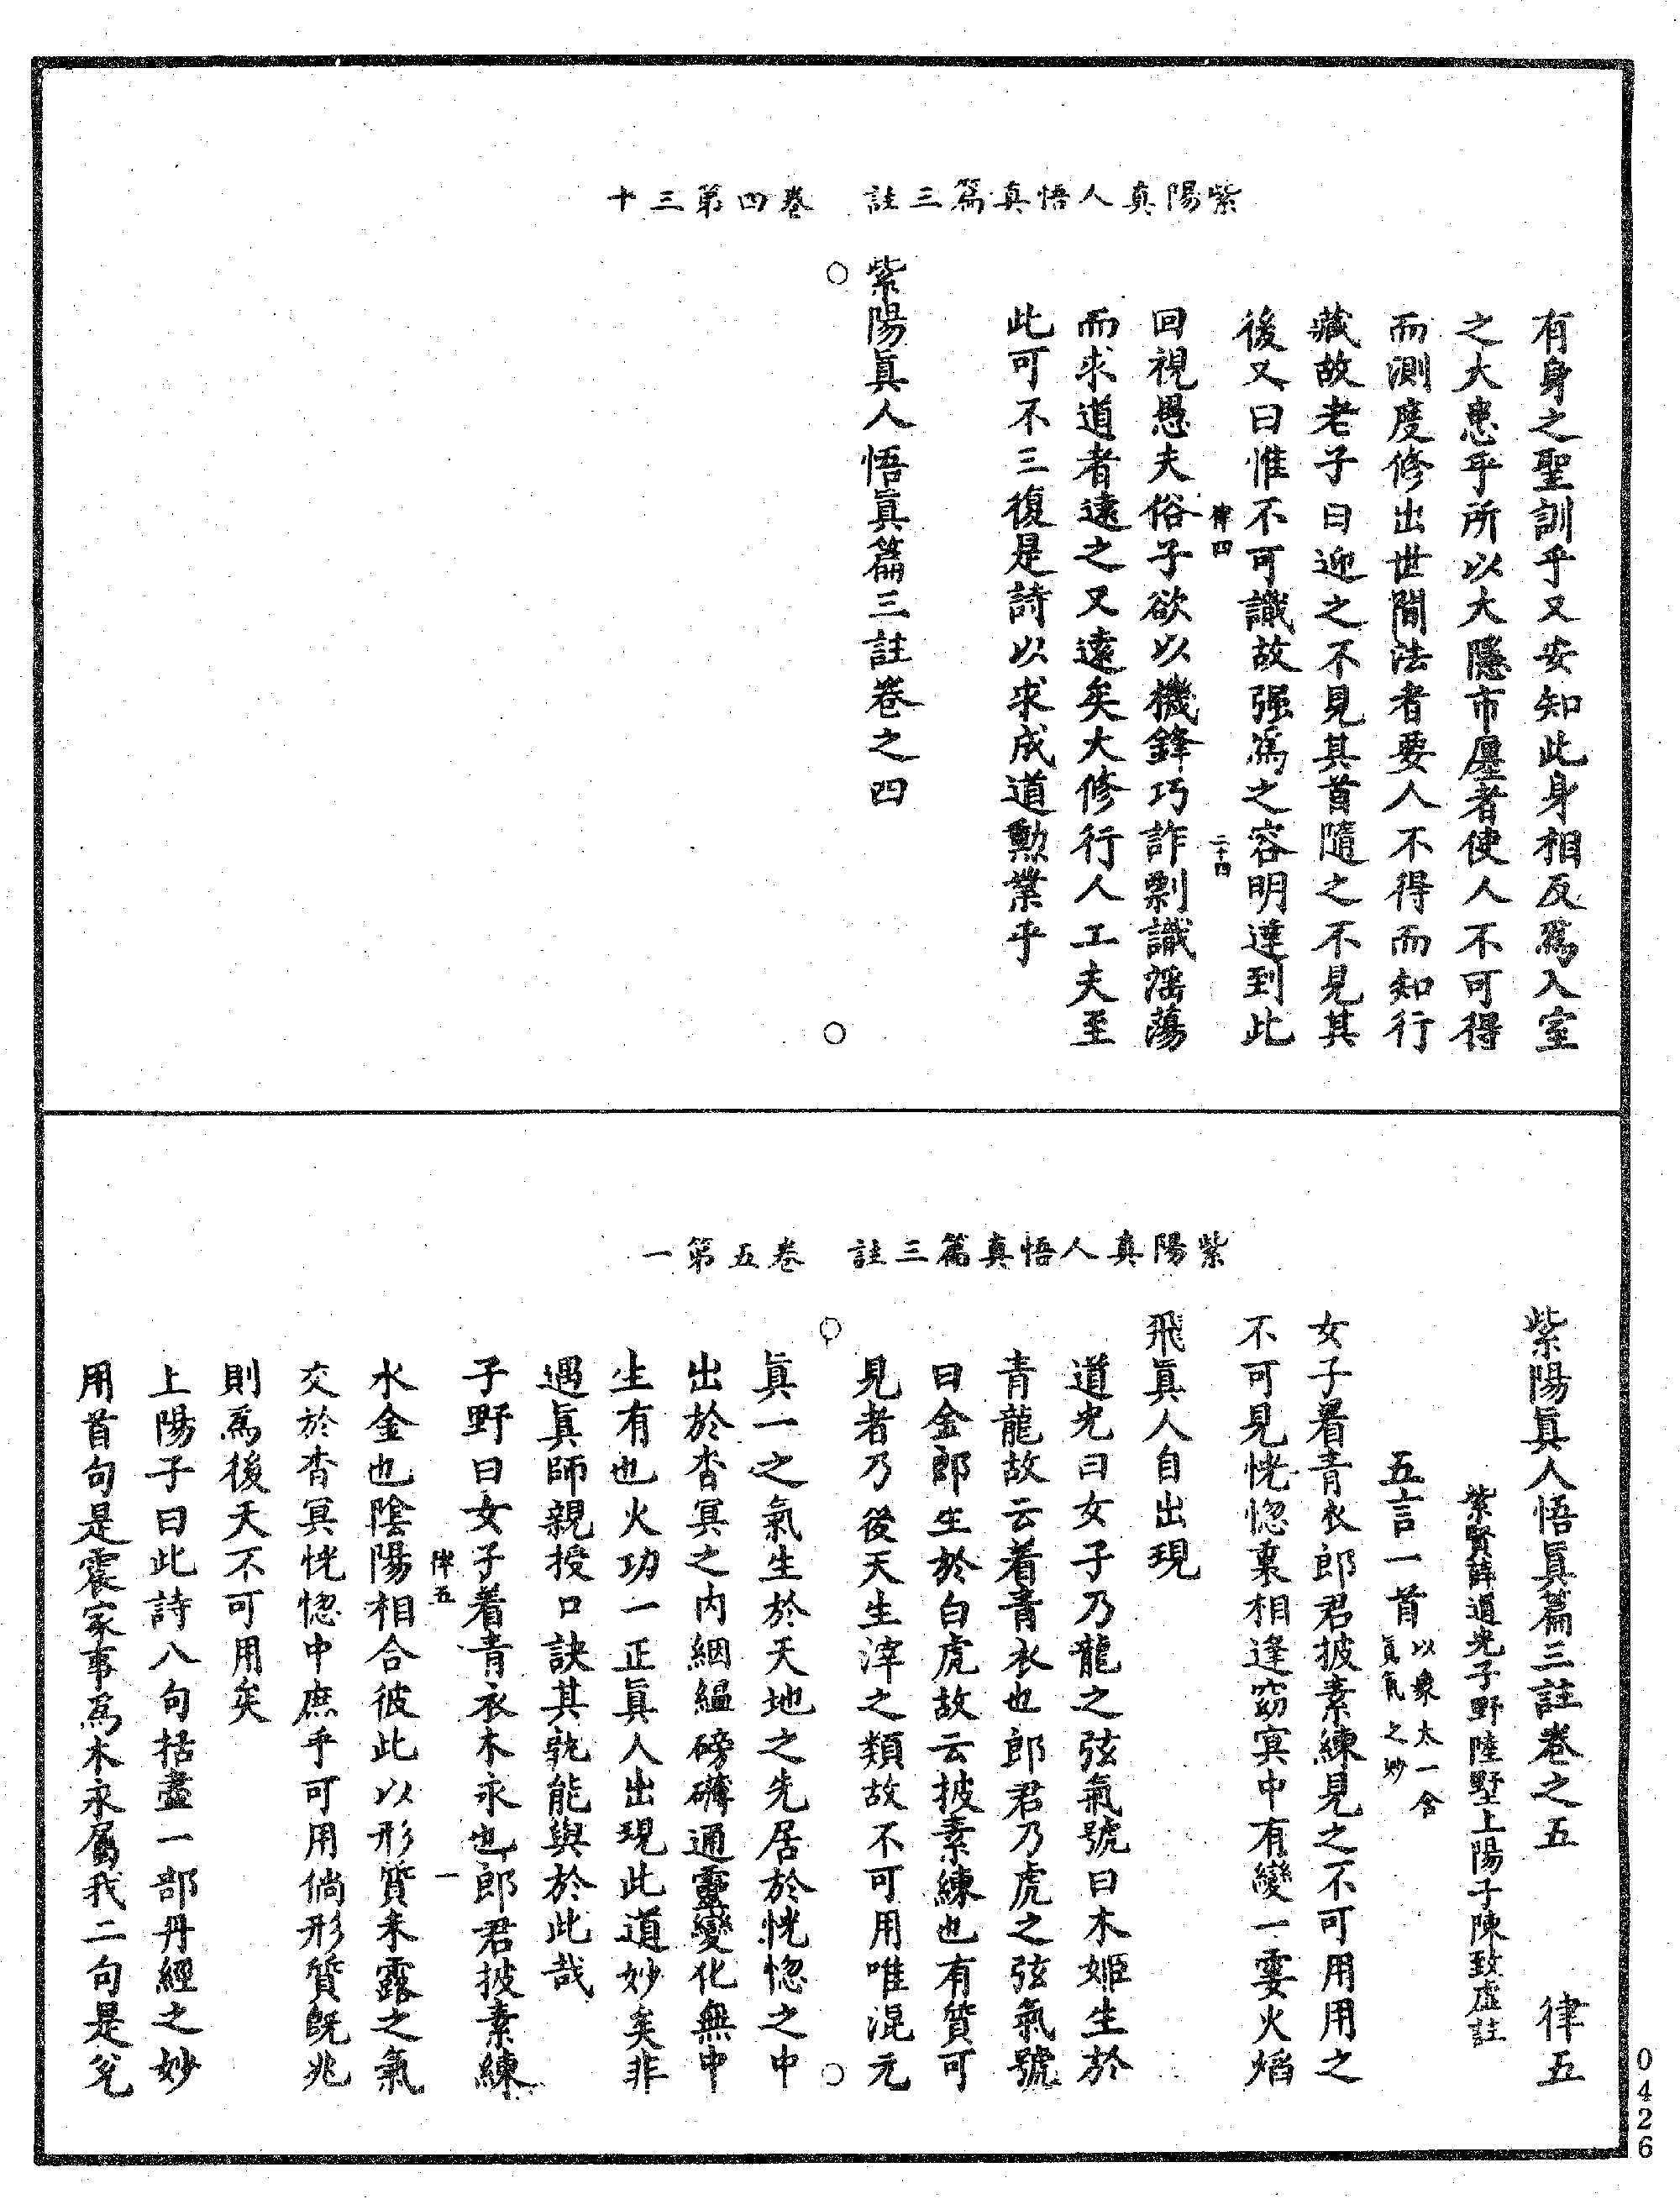 紫陽真人悟真篇三註　卷四第三十
有身之聖訓乎又安知此身相反爲入室
之大患乎所以大隱市廛者使人不可得
而測度修出世間法者要人不得而知行
藏故老子曰迎之不見其首隨之不見其
後又曰惟不可識故强爲之容明達到此
律四　二十四
回視愚夫俗子欲以機鋒巧詐剽識滛蕩
而求道者遠之又遠矣大修行人工夫至
此可不三復是詩以求成道勲業乎
紫陽眞人悟眞篇三註卷之四
紫陽真人悟真篇三註　卷五第一
紫陽眞人悟眞篇三註卷之五　律五
紫賢薛道光子野陸墅上陽子陳致虛註
五言一首以象太一含眞氣之妙
女子着青衣郎君披素練見之不可用用之
不可見恍惚裏相逢窈冥中有變一霎火焰
飛眞人自出現
道光曰女子乃龍之弦氣號曰木姬生於
青龍故云着青衣也郎君乃虎之弦氣號
曰金郎生於白虎故云披素練也有質可
見者乃後天生滓之類故不可用唯混元
眞一之氣生於天地之先居於恍惚之中
出於杳冥之內絪縕磅礴通靈變化無中
生有也火功一正眞人出現此道妙矣非
遇眞師親授口訣其孰能與於此哉
子野曰女子着青衣木汞也郎君披素練
律五　一
水金也陰陽相合彼此以形質未露之氣
交於杳冥恍惚中庶乎可用倘形質旣兆
則爲後天不可用矣
上陽子曰此詩八句括盡一部丹經之妙
用首句是震家事爲木汞屬我二句是兊